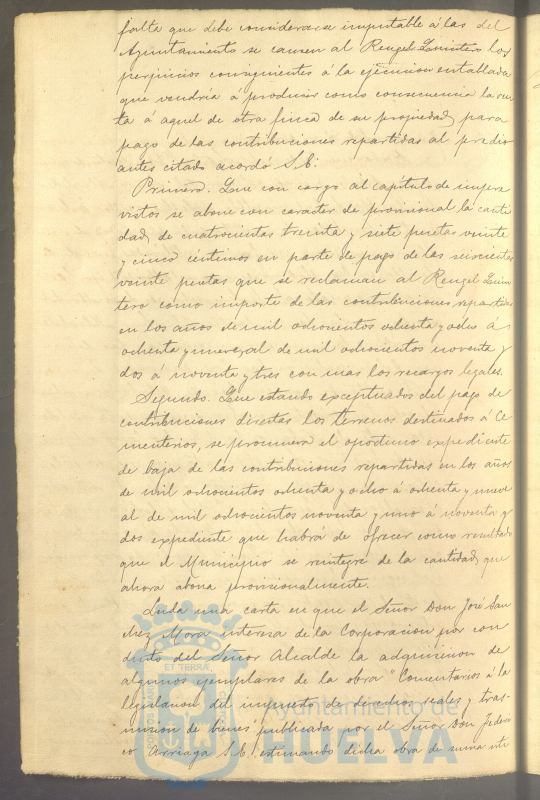 falta que debe considerarse imputable á las del
Ayuntamiento se causen al Rengel Quintero los
perjuicios consiguientes á la ejecucion entablada
que vendria á producir como consecuencia la ven
ta á aquel de otra finca de su propiedad, para
pago de las contribuciones repartidas al predio
antes citado acordó S.E.:
Primero. Que con cargo al capítulo de impre
vistos se abone con caracter de provisional la canti
dad, de cuatrocientas treinta y siete pesetas veinte
y cinco céntimos en parte de pago de las seiscientas
veinte pesetas que se reclaman al Rengel Quin
tero como importe de las contribuciones repartidas
en los años de mil ochocientos ochenta y ocho á
ochenta y nueve, al de mil ochocientos noventa y
dos á noventa y tres con mas los recargos legales.
Segundo. Que estando exceptuados del pago de
contribuciones directas los terrenos destinados á Ce
menterios, se promueva el oportuno expediente
de baja de las contribuciones repartidas en los años
de mil ochocientos ochenta y ocho á ochenta y nueve
al de mil ochocientos noventa y uno á noventa y
dos expediente que habrá de ofrecer como resultado
que el Municipio se reintegre de la cantidad, que
ahora abona provisionalmente.
Leida una carta en que el Señor Don José San
chez Mora interesa de la Corporacion por con
ducto del Señor Alcalde la adquisicion de
algunos ejemplares de la obra "Comentarios á la
legislacion del impuesto de derechos reales y tras-
mision de bienes publicada por el Señor Don Federi
co Arriaga S.E. estimando dicha obra de suma uti
ET TERRÆ
Ayuntamiento de
HUELVA